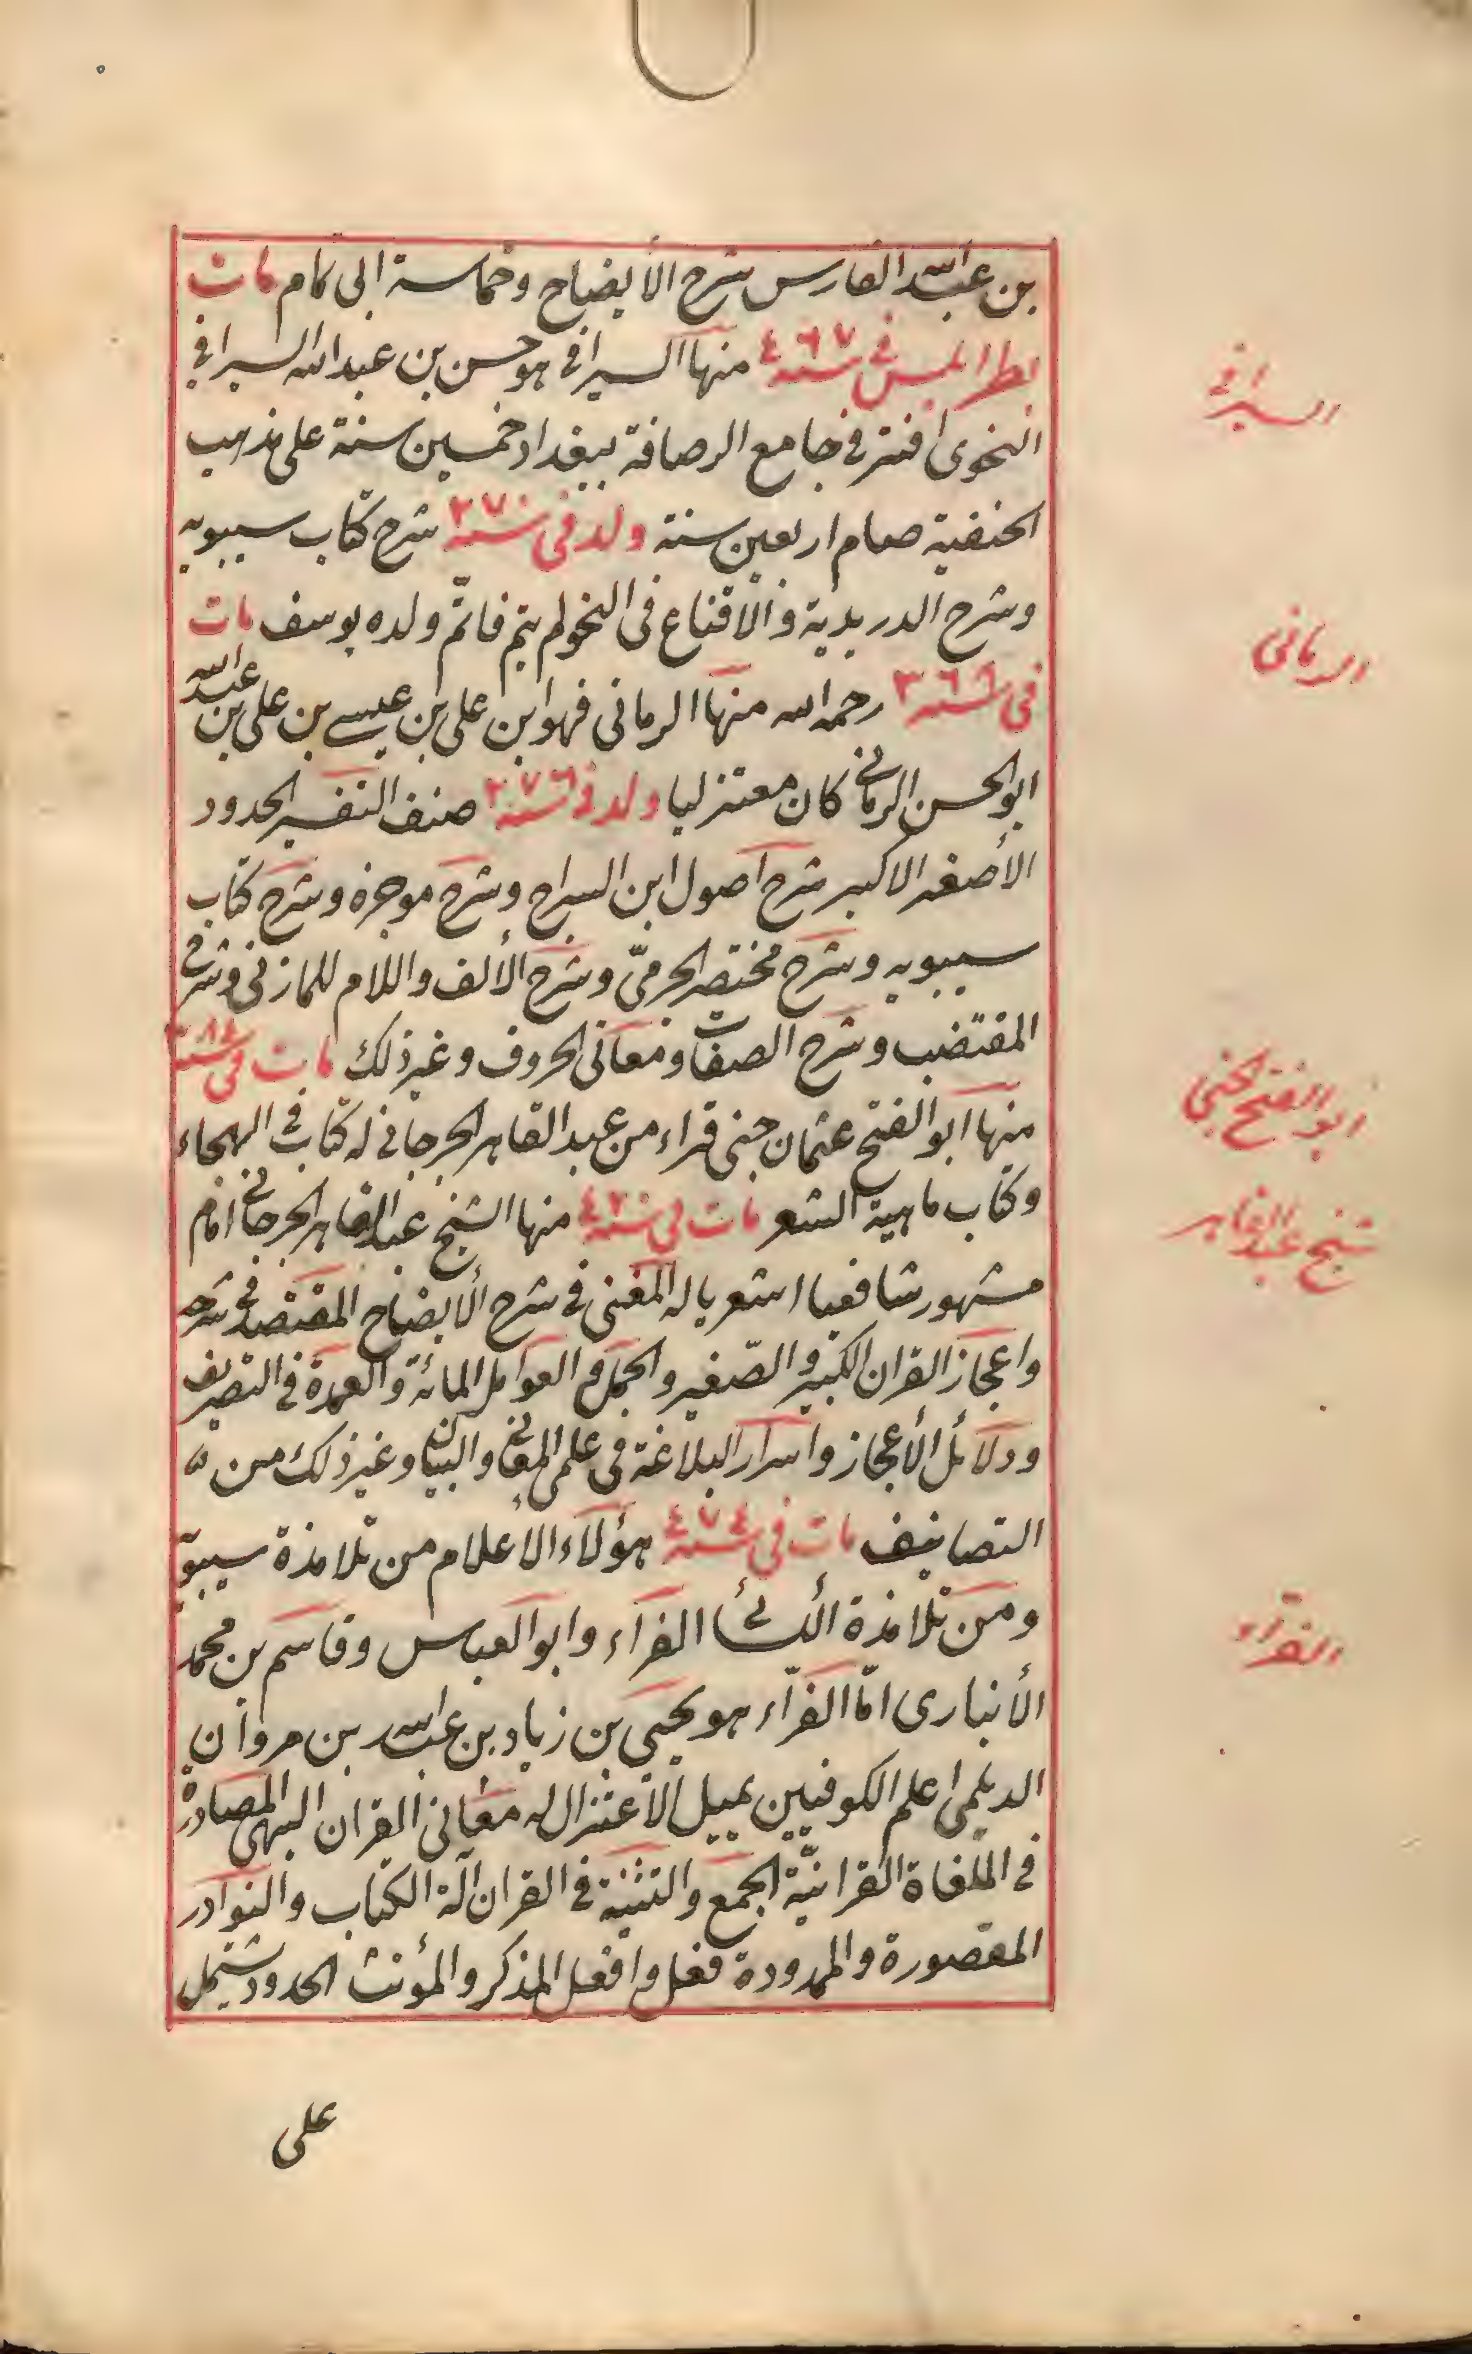 بن عبد الله الفارس شرح الأيضاح وحماسة ابى تمام مات
بطرابلس فى سنة ٤٦٧ منها السيرافى هو حسن بن عبدالله السيرافى
النحوى افتى فى جامع الرصافة ببغداد خمسين سنة على مذهب
الحنفية صام اربعين سنة ولد فى سنة ٢٧٠ شرح كتاب سيبويه
وشرح الدريدية والأقناع فى النحو لم يتم فاتمّ ولده يوسف مات
فى سنة ٣٦٦ رحمه الله منها الرمانى فهو ابن على بن عيسى بن على بن عبد الله
ابو الحسن الرمانى كان معتزليا ولد فى سنة ٢٧٦ صنف التفسير الحدود
الأصغر الاكبر شرح اصول ابن السراج وشرح موجزه وشرح كتاب
سيبويه وشرح مختصر الجرمىّ وشرح الألف واللام للمازنى وشرح
المقتضب وشرح الصفات ومعانى الحروف وغير ذلك مات فى سنة ٨٤
منها ابو الفتح عثمان جنى قراء من عبد القاهر الجرجانى له كتاب فى الهجاء
وكتاب ماهية الشعر مات فى سنة منها الشيخ عبد القاهر الجرجانى امام
مشهور شافعيا اشعريا له المغنى فى شرح الأيضاح المقتصد فى شرحه
واعجاز القران الكبير والصّغير والجمل والعوامل المائة والعمدة فى التصريف
ودلائل الأعجاز واسرار البلاغة فى علمى المعانى والبيان وغير ذلك من
التصانيف مات فى سنة ٤٧٤ هؤلاء الأعلام من تلامذة سيبويه
ومن تلامذة الكسائى الفراء وابو العباس وقاسم بن محمد
الأنبارى امّا الفرّاء هو يحيى بن زياد بن عبد الله بن مروان
الديلمى اعلم الكوفيين يميل الأعتزال له معانى القران البهى المصادر
فى القرانيّة الجمع والتثنية فى القران آلة الكتاب والنوادر
المقصورة والممدودة فعل وافعل المذكر والمؤنث الحدود مشتمل
على
السيرافى
الرمانى
ابو الفتح الجنى
شيخ عبد القاهر
الفرّاء